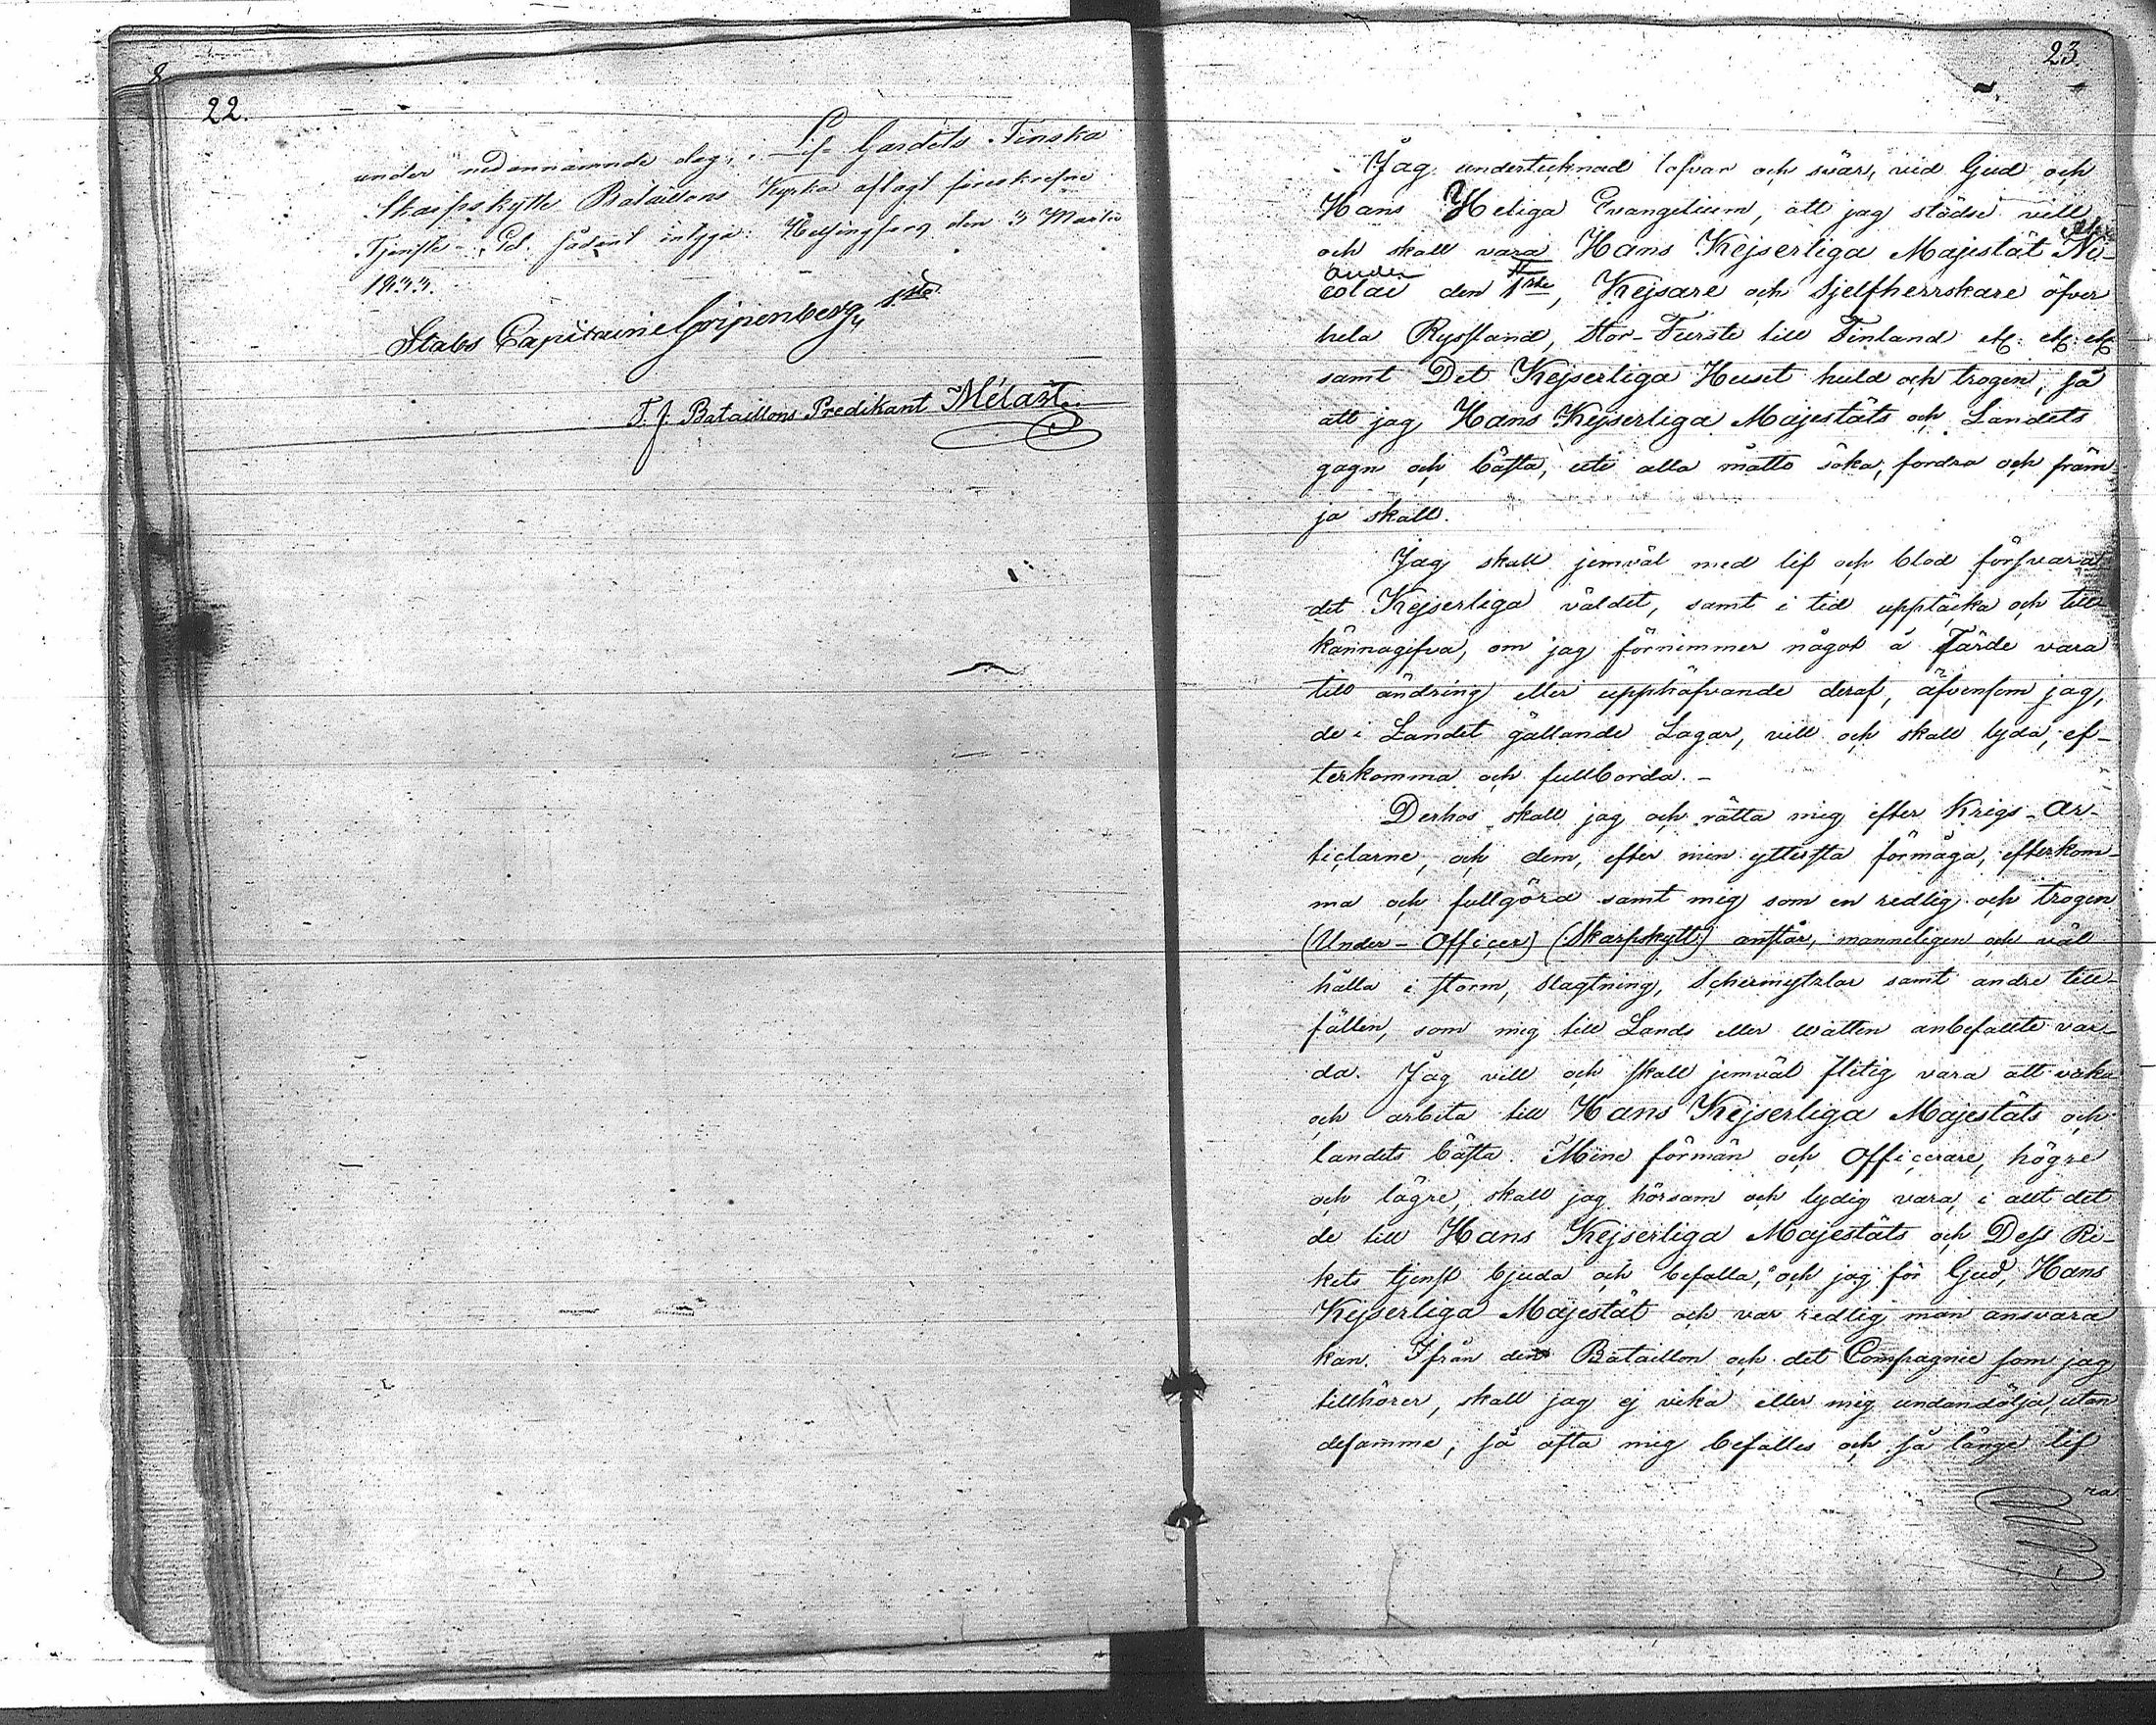 22.
under nedannämnde dag, i Lif-Gardets Finska
Skarpskytte Bataillons Kyrka aflagt föreskrefne
Tjenste-Ed. sådant intyga. Helsingfors den 3 Martii
1833.
Stabs Capitaine Gripenberg 1sta
T. f. Bataillons Predikant Mélart
23.
Jag undertecknad lofvar och svär, vid Gud och
Hans Heliga Evangelium, att jag städse vill
och skall vara Hans Kejserliga Majestät Ni-
colai den 1ste, Kejsare och Sjelfherrskare öfver
hela Ryssland, Stor-Furste till Finland etc: etc: etc
samt Det Kejserliga Huset huld och trogen, så
att jag Hans Kejserliga Majestäts och Landets
gagn och bästa, uti alla måtto söka, fordra och främ
ja skall.
Jag skall jemväl med lif och blod försvara
det Kejserliga väldet, samt i tid upptäcka och till
kännagifva, om jag förnimmer något å Färde vara
till ändring eller upphäfvande deraf, äfvensom jag,
de i Landet gällande Lagar, vill och skall lyda, ef-
terkomma och fullborda. -
Derhos skall jag och rätta mig efter Krigs-Ar-
ticlarne, och dem, efter min yttersta förmåga, efterkom-
ma och fullgöra samt mig som en redlig och trogen
(Under-Officer) (Skarpskytt) anstår, manneligen och väl
hålla i storm, Slagtning, Schermytzlar samt andre till-
fällen, som mig till Lands eller watten anbefallte var-
da. Jag vill och skall jemväl flitig vara att vaka
och arbeta till Hans Kejserliga Majestäts och
landets bästa. Mine förmän och Officerare, högre
och lägre, skall jag hörsam och lydig vara, i allt det
de till Hans Kejserliga Majestäts och Dess Ri-
kets tjenst bjuda och befalla, och jag för Gud, Hans
Kejserliga Majestät och var redlig man ansvara
kan. Ifrån den Bataillon och det Compagnie som jag
tillhörer, skall jag ej vika eller mig undandölja, utan
desamme, så ofta mig befalles och så länge lif
ra